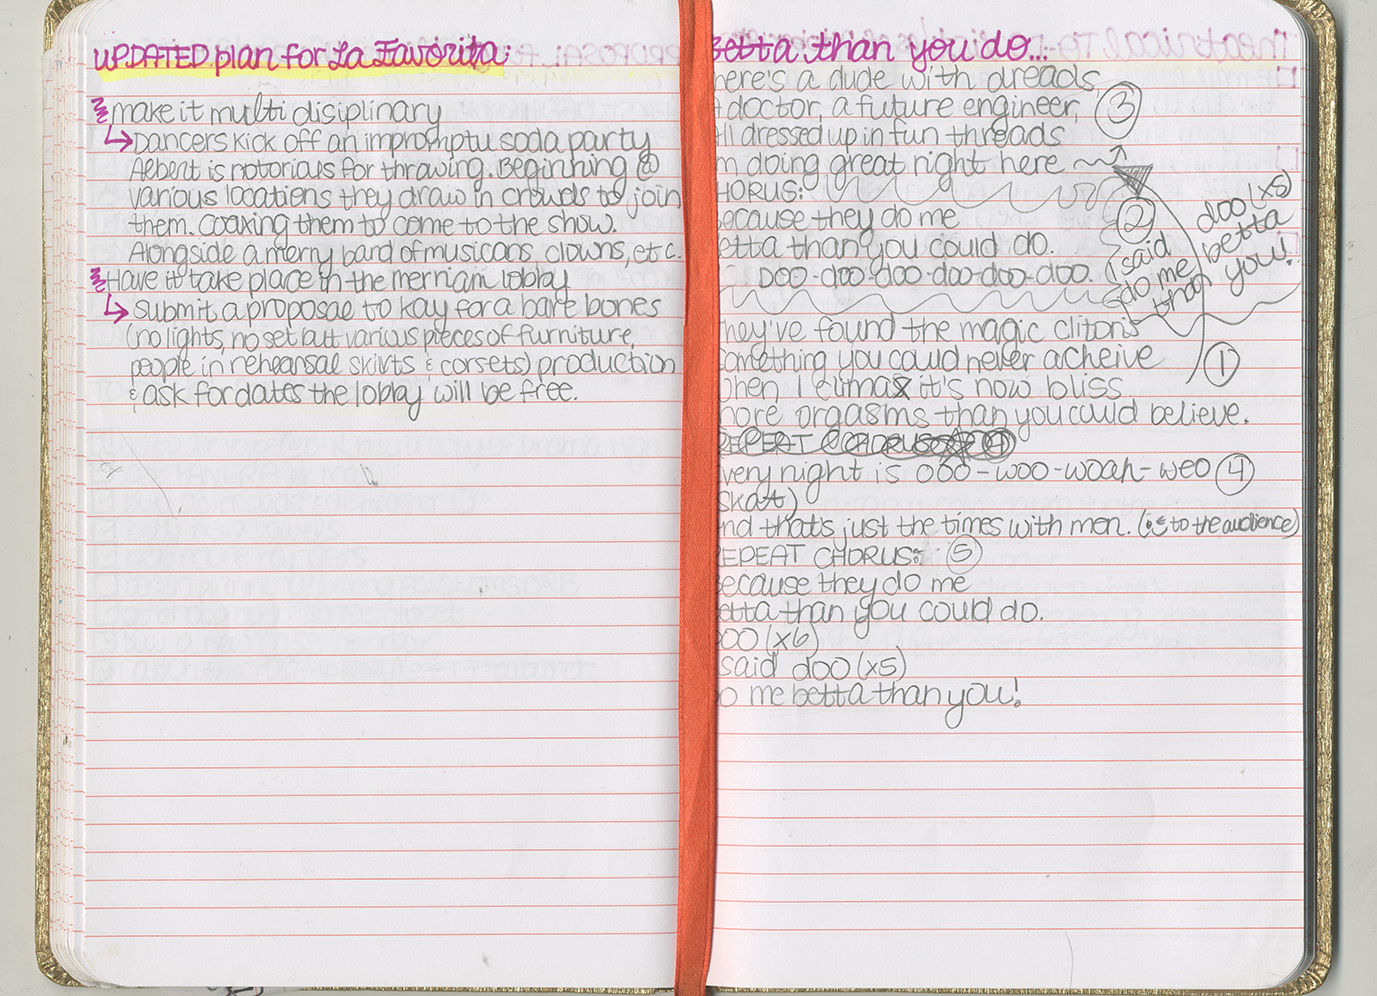 UPDATED plan for La Favorita:
make it multi disiplinary
Dancers kick off an impromptu soda party
Albert is notorious for throwing. Beginning @
various locations they draw in crowds to join
them. Coaxing them to come to the show.
Alongside a merry band of musicans, clowns, etc.
Have it take place in the merriam lobby
Submit a proposal to kay for a bare bones
(no lights, no set but various pieces of furniture,
people in rehearsal skirts & corsets) production
& ask for dates the lobby will be free.
Betta than you do...
here's a dude with dreads
doctor, a future engineer, 3
ll dressed up in fun threads
m doing great right here
HORUS:
ecause they do me 2
etta than you could do.
Doo-doo-doo-doo-doo-doo.
(I said doo (x5)
do me betta
than you!
hey've found the magic clitoris
omething you could never acheive 1
hen I climax it's now bliss
more orgasms than you could believe.
REPEAT CHORUS
very night is ooo-woo-woah-weo 4
skat)
nd that's just the times with men. (to the audience)
EPEAT CHORUS: 5
ecause they do me
etta than you could do.
oo (x6)
said doo (x5)
o me betta than you!